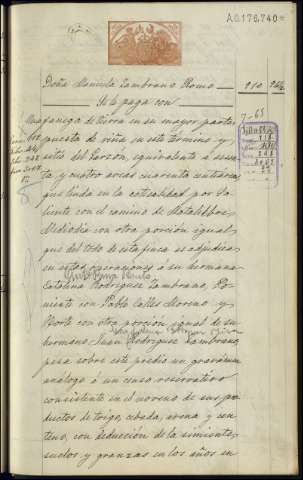 A.0.176.740*
Doña Manuela Zambrano Romo 910
Se le paga con
Una fanega de tierra en su mayor parte
puesta de viña en este término y
sitio del Garzón, equivalente á sesen-
ta y cuatro areas cuarenta centiareas
que linda en la totalidad por Sa-
liente con el camino de
Mediodia con otra porción igual
que del todo de esta finca se adjudica
en estas operaciones á su hermana
Catalina Rodriguez Zambrano, Po-
niente con Pablo Calles Moreno y
Norte con otra porción igual de su
hermano Juan Rodriguez Zambrano,
pesa sobre este predio un gravamen
análogo á un censo reservativo
consistente en el noveno de sus pro-
ductos de trigo, cebada, avena y cen-
teno, con deducción de la simiente,
suelos y granzas en los años en